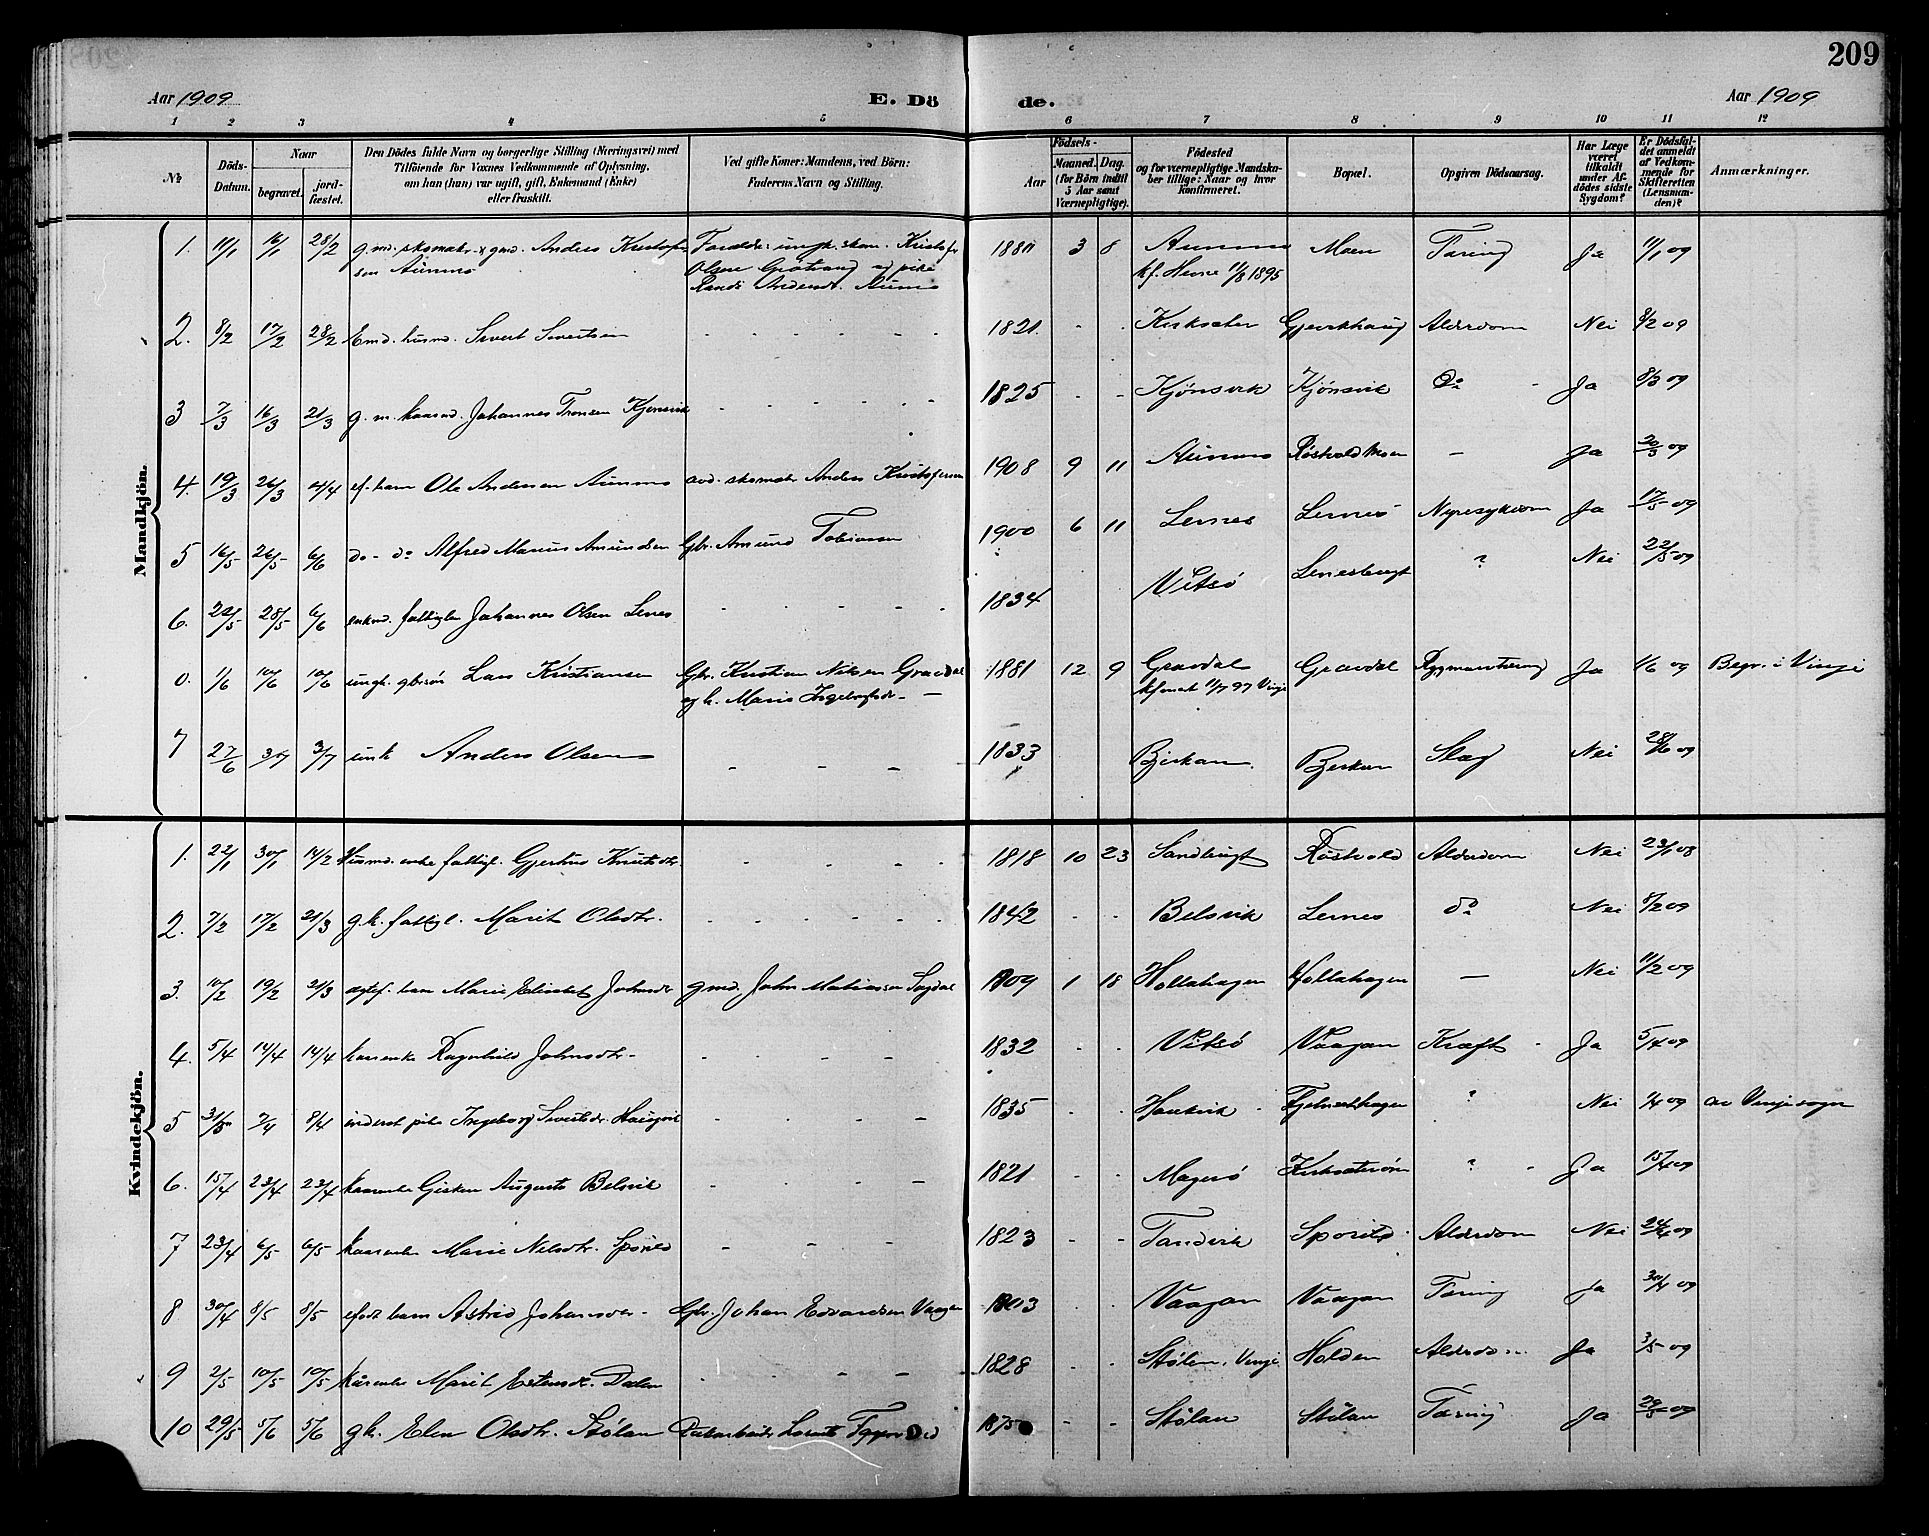 209
Aar 1909
E. Dö
de.
Aar 1909
1 2 3 4 5 6 7 8 9 10 11 12
№
Döds-Datum.
Naar
begravet.
jord-fæstet.
Den Dödes fulde Navn og borgerlige Stilling (Næringsvei) med
Tilföiende for Voxnes Vedkommende af Oplysning,
om han (hun) var ugift, gift, Enkemand (Enke)
eller fraskilt.
Ved gifte Koner: Mandens, ved Börn:
Faderens Navn og Stilling.
Födsels-
Aar
Maaned. Dag.
(for Börn indtil
5 Aar samt
Værnepligtige).
Födested
og for værnepligtige Mandska-
ber tillige: Naar og hvor
konfirmeret.
Bopæl.
Opgiven Dödsaarsag.
Har Læge
været
tilkaldt
under Af-
dödes sidste
Sygdom?
Er Dödsfal-
det anmeldt
af Vedkom-
mende for
Skifteretten
(Lensman-
den)?
Anmærkninger.
Mandkjön.
1. 11/1 16/1 28/2 gmd. skomakr. Anders Kristofer- Foreldre: ungk. skom. Kristofer 3 8 Moen Tæring Ja 11/1 09
sen Aunmo Olsen og pike kf. Hevne 11/8 1895
2. 8/2 17/2 28/2 Emd. husmd. Sivert Sivertsen - - - - 1821 - - Kirksæter Alderdom Nei 8/2 09
3 7/3 16/3 21/3 g. m. kaarmd. Johannes Tronsen Kjønsvik - - - - 1825 - - Kjønsvik Kjønsvik Do - Ja 8/3 09
4. 19/3 26/3 ef. barn Ole Andersen Aunmo avd. skomakr. Anders Kristofersen 1908 9 11 Aunmo Røstvold Moen — Ja 20/3 09
5 16/5 26/5 6/6 do - do Alfred Marius Amundsen Gbr. Amund Tobiassen 1900 6 11 Lernes Lernes Nyresykdom Ja 17/5 09
6. 22/5 28/5 6/6 enkmd. fattiglm Johannes Olsen Lenes - - - - 1834 Vitsø Lenesbugt ? Nei 22/5 09
0. 1/6 10/6 10/6 ungk. gbrsøn Lars Kristiansen Gbr. Kristian Nilsen Gravdal 1881 12 9 Gravdal Gravdal Rygmarvtæring Ja 1/6 09 Begr. i Vinje
og h. Marie Ingebrigtsdr. — kfirmert 11/7 97 Vinje
7 27/6 3/7 3/7 unk Anders Olsen - - - 1833 Bjerkan Bjerkan Slag Nei 28/6 09
Kvindekjön.
1. 22/1 30/1 14/2 Husmd. enke fattigl. Gjertrud Knutsdtr. - - - - 1818 10 23 Sandbugt Røstvold Alderdom Nei 23/1 08
2. 7/2 17/2 21/3 g. k. fattigl. Marit Olsdtr. - - - - - 1842 - - Belsvik Lernes do Nei 8/2 09
3. 10/2 19/2 21/3 egtef. barn Marie Elisabet Johnsdr gmd. John Matiassen Sagdal 1909 1 18 Hollahagen Hollahagen — Nei 11/2 09
4. 5/4 14/4 14/4 kaarenke Ragnhild Johnsdtr. - - - - 1832 Vitsø Vaagan Kræft - Ja 5/4 09
5 31/3 2/4 8/4 inderst pike Ingeborg Sivertsdr. Haugvik - - - - 1835 - - ? Nei 1/4 09 av Vinje sogn
6. 15/4 23/4 23/4 kaarenke Gjerken Augusta Belsvik - - - - 1821 - - Magerø Kirksæterøren ? - Ja 15/4 09
7 23/4 6/5 6/5 kaarenke Marie Nilsdtr. Spørild - - - - 1823 - - Tandvik Sporild Alderdom Nei 24/4 09
8 30/4 8/5 8/5 efødt barn Astrid Johansdtr. - Gbr. Johan Edvardsen Vaagan 1903 - - Vaagan Vaagan Tæring Ja 30/4 09
9 2/5 10/5 10/5 kårenke Marit Estensdr. Dalen - - - - 1828 - - Stølen, Vinje Holden Alderdom Ja 3/5 09
10 29/5 5/6 5/6 gk. Elen Olsdtr. Stølan 1875 - - Stølan Stølan Tæring Ja 29/5 09